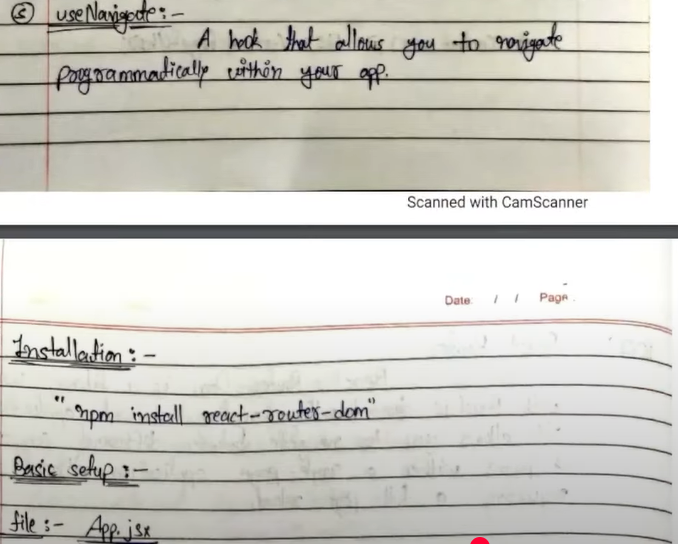 ⑤ useNavigate:-
A hook that allows you to navigate
programmadically within your app.
Scanned with CamScanner
Date / / Page
Installation:-
"npm install react-router-dom"
Basic setup:-
file:- App.jsx